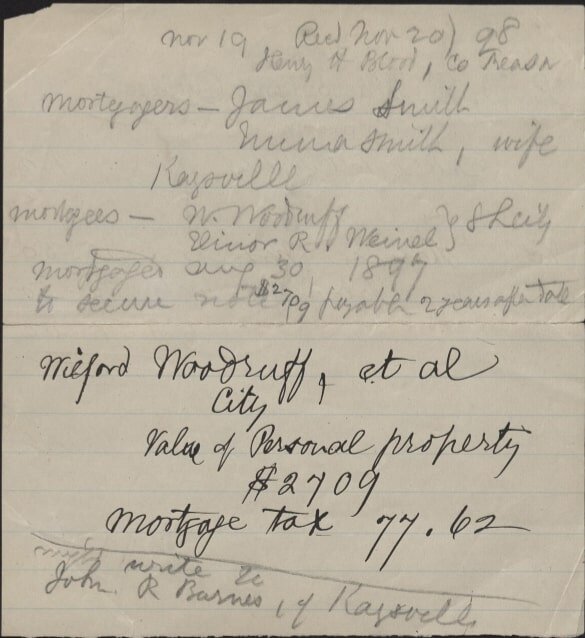 Nov 19 Recd Nov 20) 98
Henry H Blood, Co Treasr
mortgagers — James Smith
Emma Smith, wife
Kaysville
mortgees — W. Woodruff
Elinor R. Weinel } S L City
mortgages aug 30, 1897
to secure note $2709 payable 2 years after date
Wilford Woodruff, et al
City
Value of Personal property
$2709
mortgage tax 77.62
write to
John R Barnes, of Kaysville